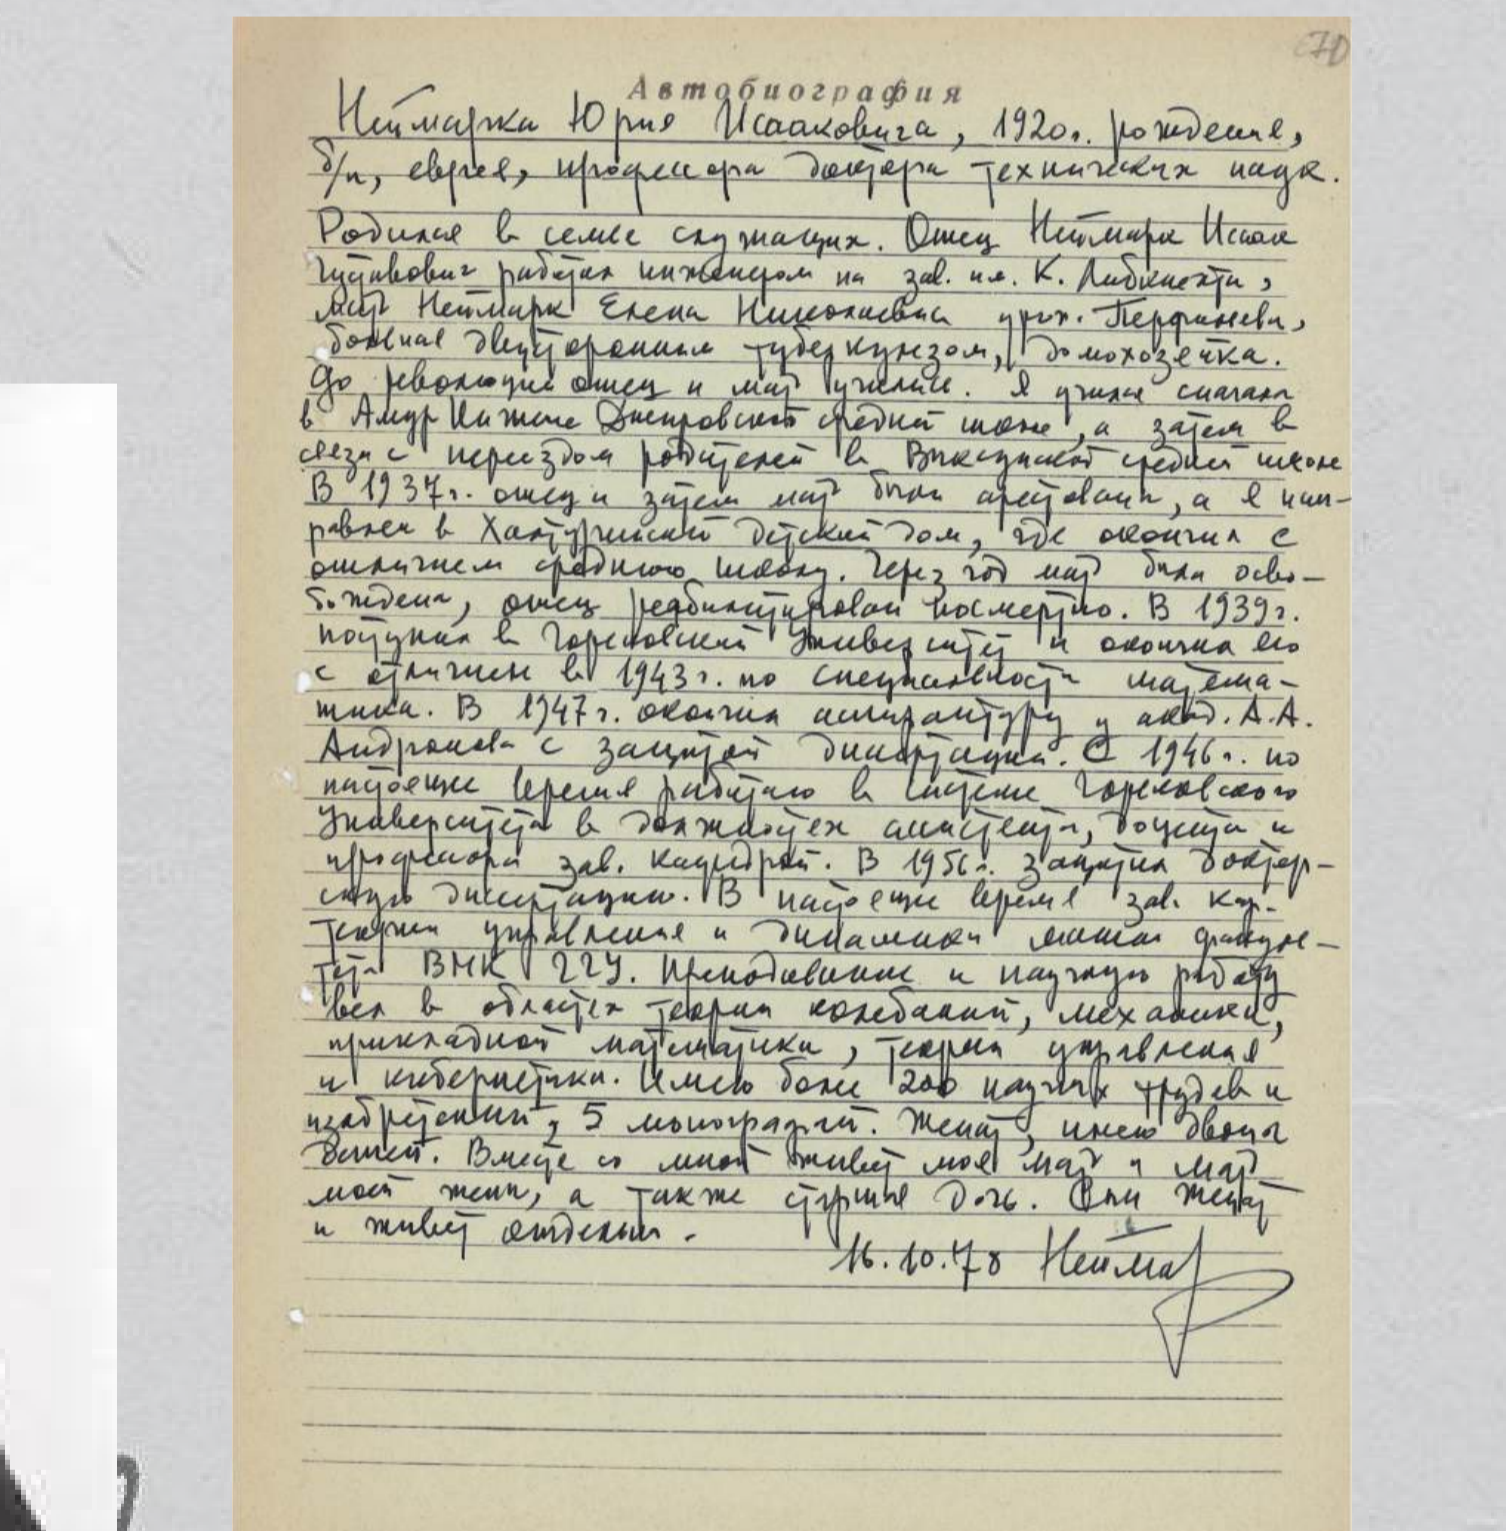 70
Автобиография
Неймарка Юрия Исааковича, 1920г. рождения,
б/п, еврея, профессора доктора технических наук.
Родился в семье служащих. Отец Неймарк Исаак
работал инженером на зав. им. К. Либкнехта,
мать Неймарк Елена Николаевна урож.
больная двусторонним туберкулезом, домохозяйка.
До революции отец и мать учились. Я учился сначала
в Амур Нижне Днепровской средней школе, а затем в
связи с переездом родителей в Выксунской средней школе
В 1937г. отец и затем мать были арестованы, а я нап-
равлен в детский дом, где окончил с
отличием среднюю школу. Через год мать была осво-
бождена, отец реабилитирован посмертно. В 1939г.
поступил в Горьковский Университет и окончил его
с отличием в 1943г. по специальности матема-
тика. В 1947г. окончил аспирантуру у акад. А.А.
Андронова с защитой диссертации. С 1946г. по
настоящее время работаю в системе Горьковского
Университета в должностях ассистента, доцента и
профессора зав. кафедрой. В 1956г. защитил доктор-
скую диссертацию. В настоящее время зав. каф.
теории управления и динамики машин факуль-
тета ВМК ГГУ. Преподавание и научную работу
вел в областях теории колебаний, механики,
прикладной математики, теории управления
и кибернетики. Имею более 200 научных трудов и
изобретений, 5 монографий. Женат, имею двоих
детей. Вместе со мной живет моя мать и мать
моей жены, а также старшая дочь. Сын женат
и живет отдельно.
16.10.78 Неймар